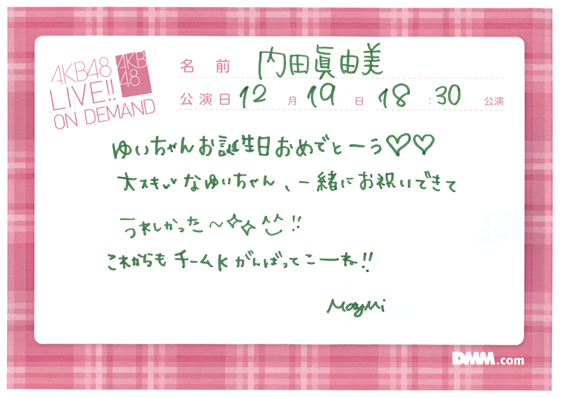 AKB48
LIVE!!
ON DEMAND
AKB
48
名前 内田眞由美
公演日 12月 19日 18:30 公演
ゆいちゃんお誕生日おめでとーう♡♡
大スキぃなゆいちゃん、一緒にお祝いできて
うれしかった〜✧✧^^!!
これからもチームKがんばってこーね!!
MayuMi
DMM.com